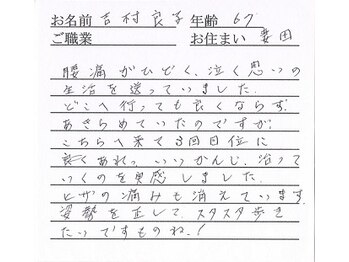 お名前 吉村良子 年齢 67
ご職業 お住まい 豊田
腰痛がひどく、泣く思いの
生活を送っていました。
どこへ行っても良くならず、
あきらめていたのですが、
こちらへ来て3回目位に
良くあれっ、いいかんじ、治って
いくのを実感しました。
ヒザの痛みも消えています。
姿勢を正して、スタスタ歩き
たいですものね!